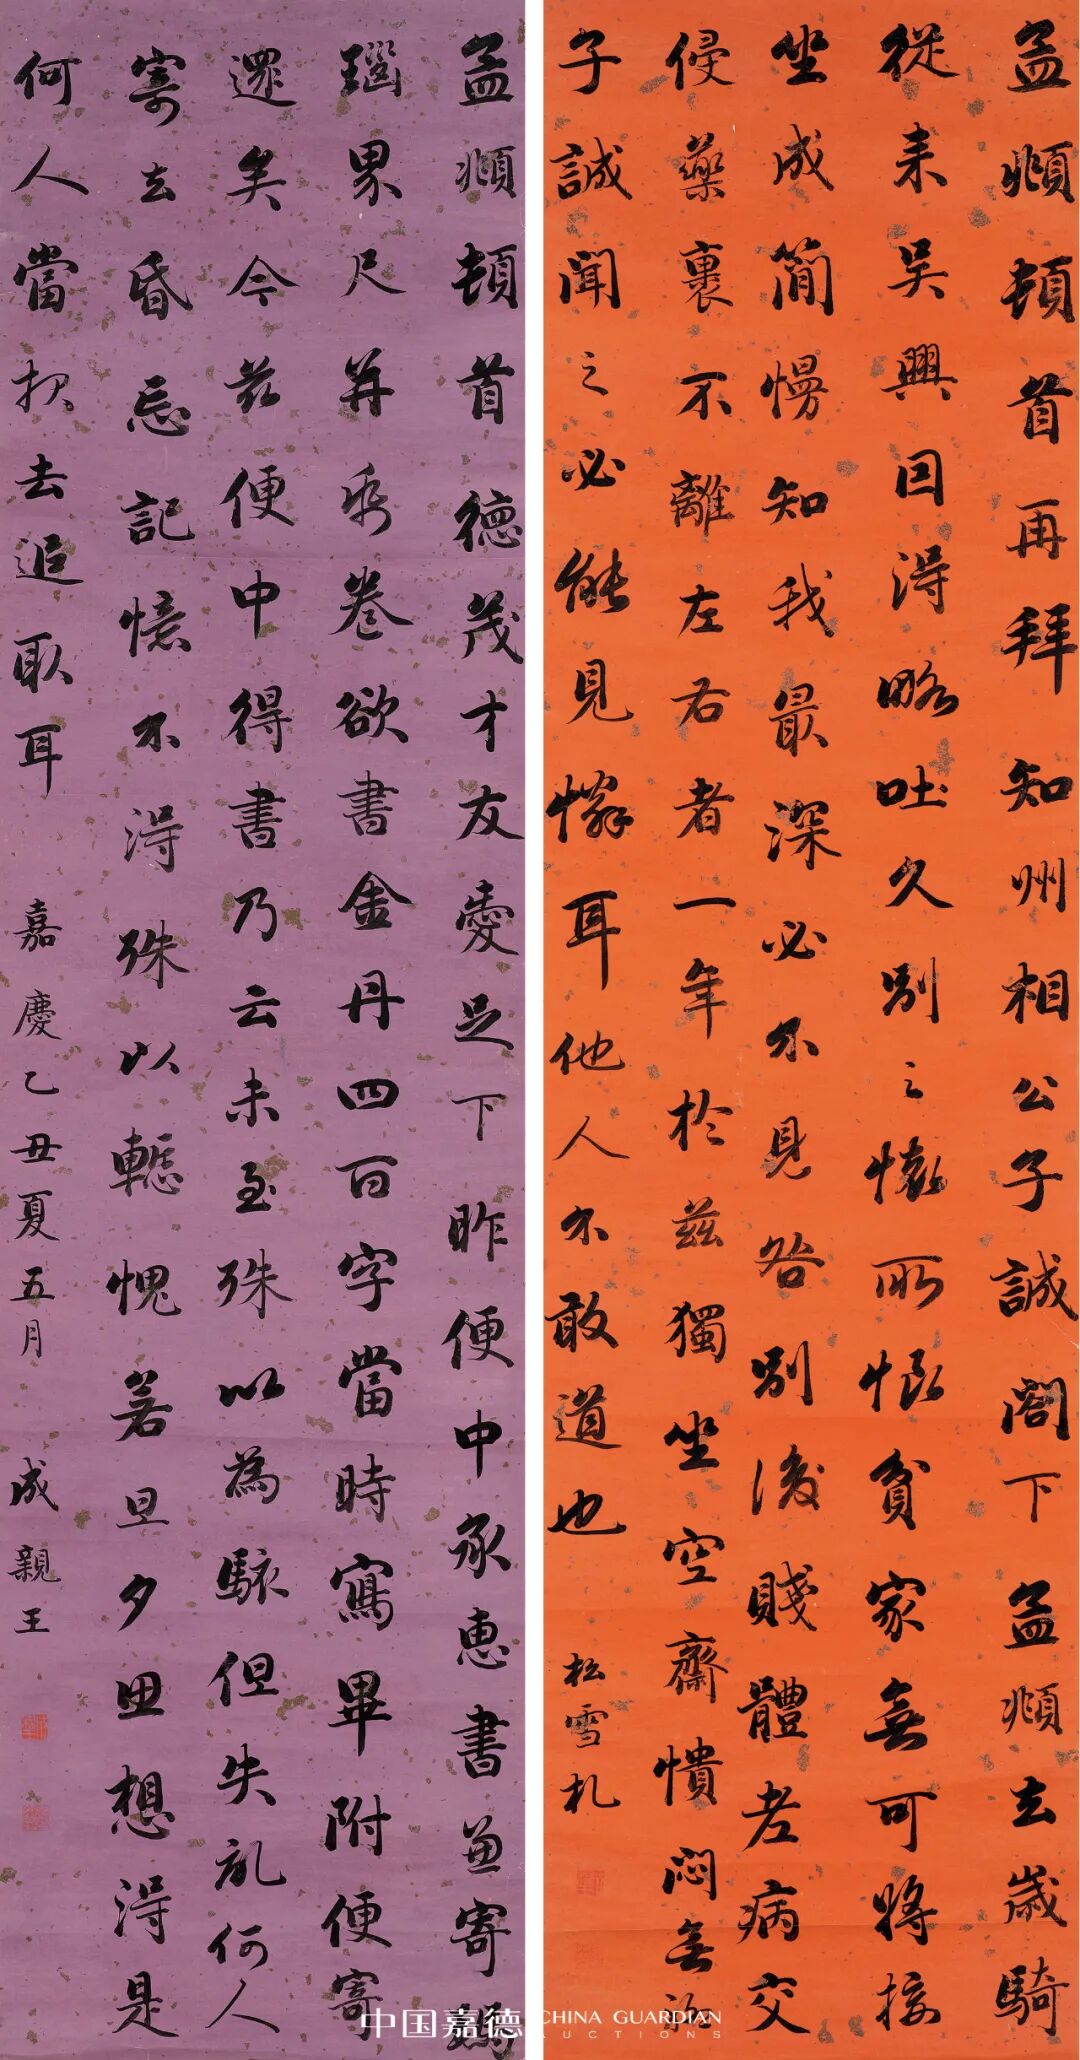 孟頫頓首再拜知州相公子誠閣下孟頫去歲騎
從來吴興因得略吐久別之懷所恨貧家無可將接
坐成簡慢知我最深必不見咎別後賤體老病交
侵藥裹不離左右者一年於茲獨坐空齋憒悶無
子誠聞之必能見憐耳他人不敢道也
松雪札
孟頫頓首德茂才友愛足下昨便中承惠書兼寄
瑙界尺并系卷欲書金丹四百字當時寫畢附便寄
還矣今茲便中得書乃云未至殊以為駭但失亂何人
寄去昏忘記憶不得殊以轗愧若旦夕思想得是
何人當報去追取耳
嘉慶乙丑夏五月
成親王
中国嘉德
CHINA GUARDIAN
AUCTIONS